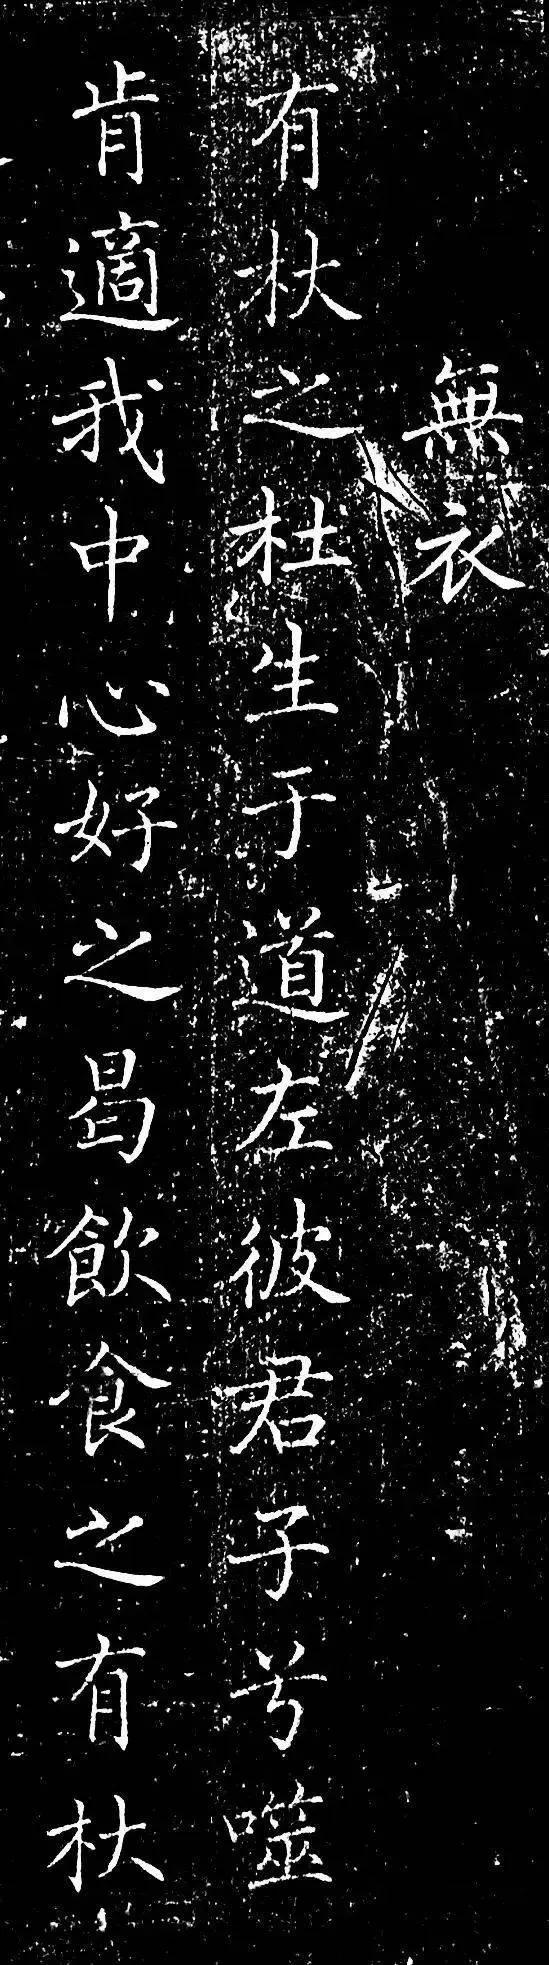 無衣
有杕之杜生于道左彼君子兮噬
肯適我中心好之曷飲食之有杕